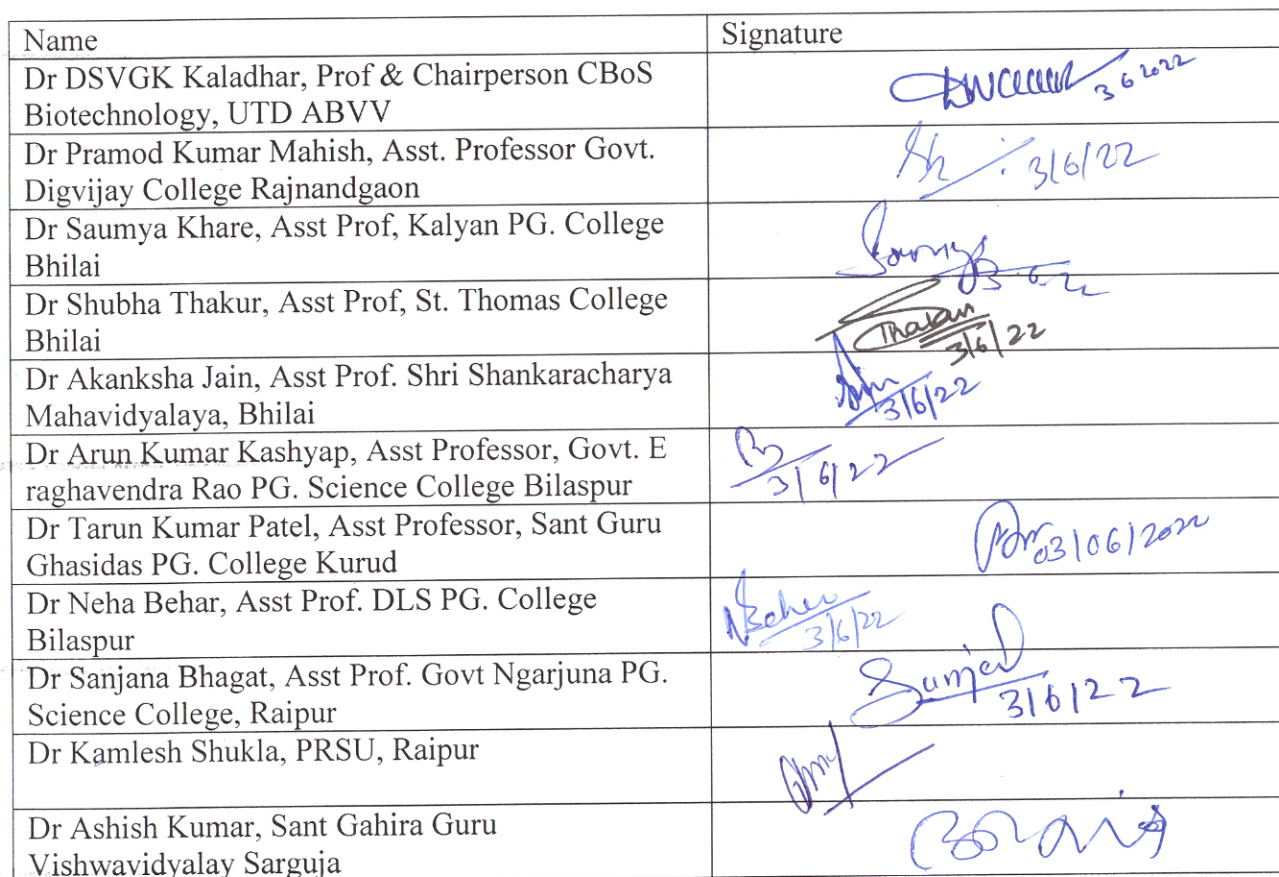 Name
Signature
Dr DSVGK Kaladhar, Prof & Chairperson CBoS
Biotechnology, UTD ABVV
3 6 2022
Dr Pramod Kumar Mahish, Asst. Professor Govt.
Digvijay College Rajnandgaon
3/6/22
Dr Saumya Khare, Asst Prof, Kalyan PG. College
Bhilai
Saumya
3.6.22
Dr Shubha Thakur, Asst Prof, St. Thomas College
Bhilai
Thakur
3/6/22
Dr Akanksha Jain, Asst Prof. Shri Shankaracharya
Mahavidyalaya, Bhilai
3/6/22
Dr Arun Kumar Kashyap, Asst Professor, Govt. E
raghavendra Rao PG. Science College Bilaspur
3/6/22
Dr Tarun Kumar Patel, Asst Professor, Sant Guru
Ghasidas PG. College Kurud
03/06/2022
Dr Neha Behar, Asst Prof. DLS PG. College
Bilaspur
NBehar
3/6/22
Dr Sanjana Bhagat, Asst Prof. Govt Ngarjuna PG.
Science College, Raipur
3/6/22
Dr Kamlesh Shukla, PRSU, Raipur
Dr Ashish Kumar, Sant Gahira Guru
Vishwavidyalay Sarguja